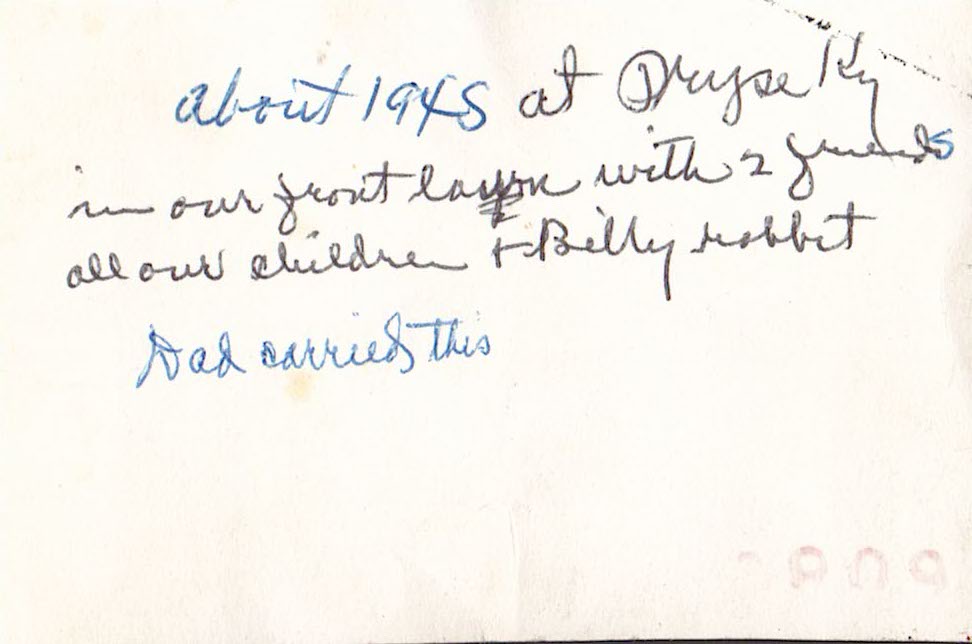 about 1945 at Dryse Ky
in our front lawn with 2 friends
all our children + Billy rabbit
Dad carried this